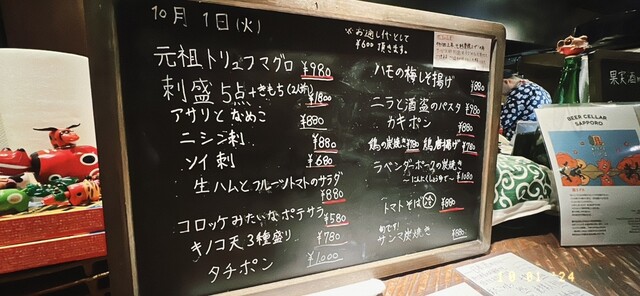 10月1日(火)
※お通し代として
¥600頂きます。
元祖トリュフマグロ ¥980
刺盛5点+きもち(2人前) ¥1800
アサリとなめこ ¥880
ニシン刺 ¥880
ソイ刺 ¥680
生ハムとフルーツトマトのサラダ ¥880
コロッケみたいなポテサラ ¥580
キノコ天3種盛り ¥780
タチポン ¥1,000
ハモの梅しそ揚げ ¥880
ニラと酒盗のパスタ ¥980
カキポン ¥880
鶏の炭焼き ¥780 鶏唐揚げ ¥780
ラベンダーポークの炭焼き
~にんにくしょうゆで~ ¥1080
トマトそば(冷) ¥880
めです!
サンマ炭焼き ¥880
果実酒
BEER CELLAR
SAPPORO
10 01 '24